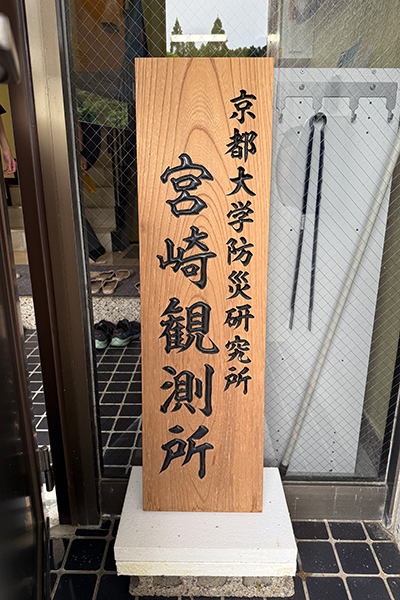 京都大学防災研究所
宮崎観測所